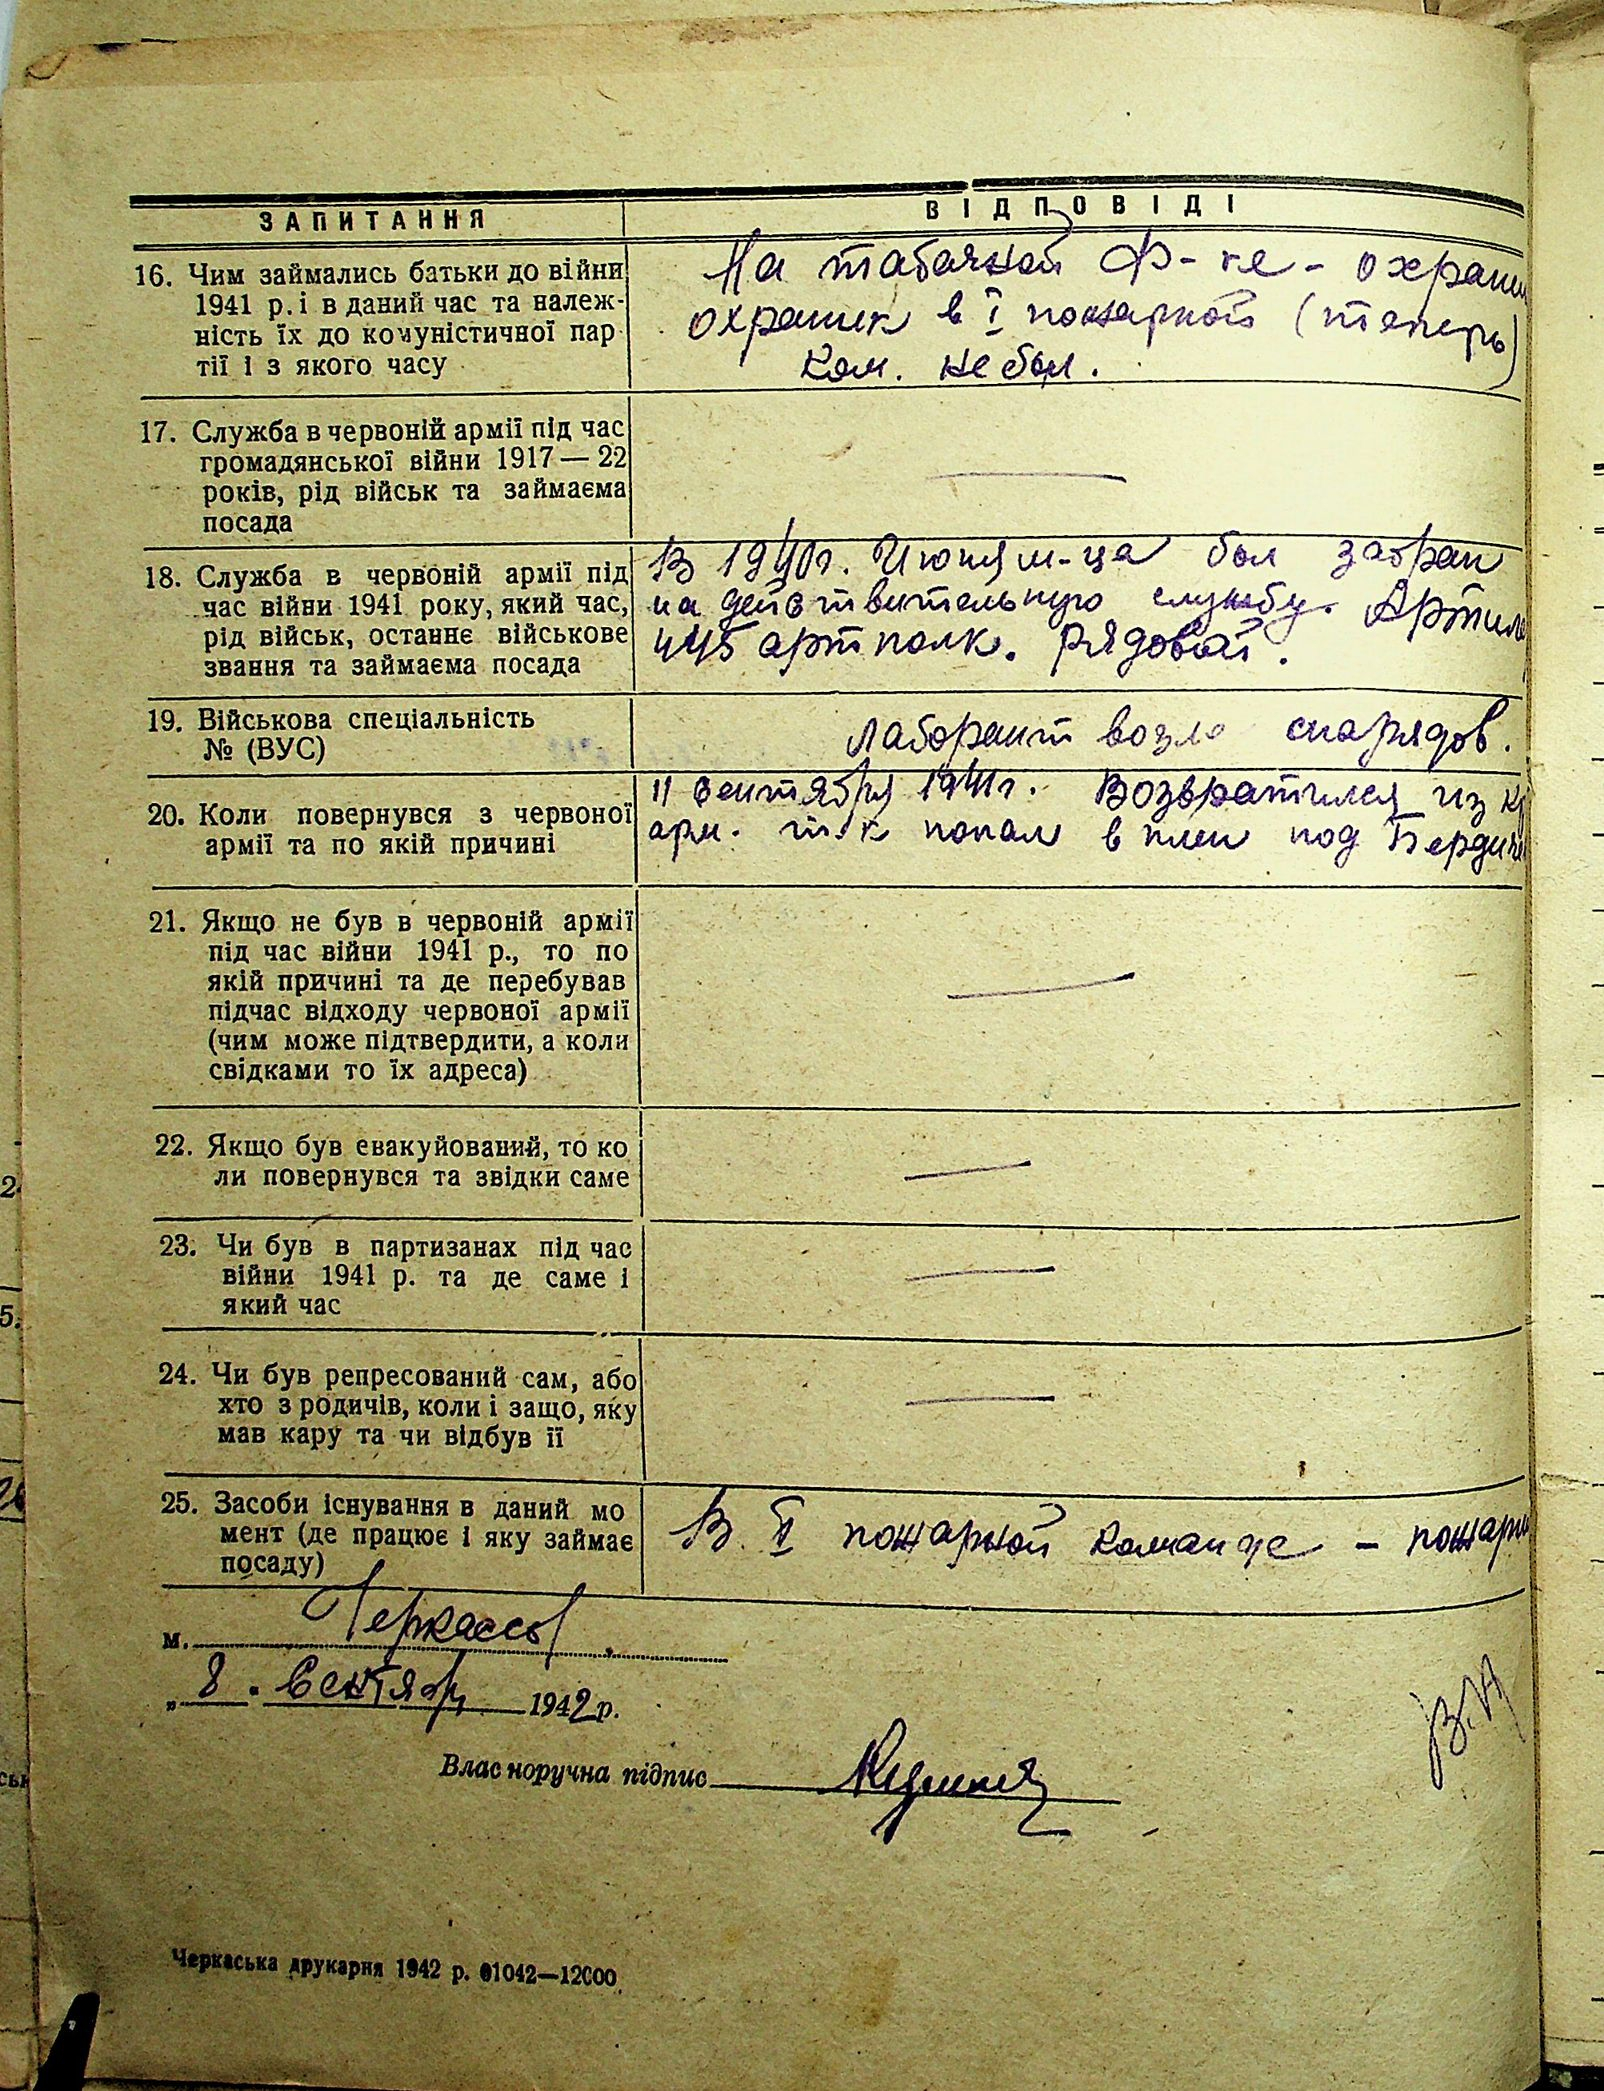 ЗАПИТАННЯ
ВІДПОВІДІ
16. Чим займались батьки до війни
1941 р. і в даний час та належ-
ність їх до комуністичної пар
тії і з якого часу
На табачной Ф-ке - охранн
охраник в І пожарной (теперь)
Ком. не был.
17. Служба в червоній армії під час
громадянської війни 1917—22
років, рід військ та займаєма
посада
—
18. Служба в червоній армії під
час війни 1941 року, який час,
рід військ, останнє військове
звання та займаєма посада
В 1940г. Июня м-ца был забран
на действительную службу. Артил
445 артполк. Рядовой.
19. Військова спеціальність
№ (ВУС)
лаборант возле снарядов.
20. Коли повернувся з червоної
армії та по якій причині
11 сентября 1941г. Возвратился из Кр
арм. т.к попал в плен под Бердиче
21. Якщо не був в червоній армії
під час війни 1941 р., то по
якій причині та де перебував
підчас відходу червоної армії
(чим може підтвердити, а коли
свідками то їх адреса)
—
22. Якщо був евакуйований, то ко
ли повернувся та звідки саме
—
23. Чи був в партизанах під час
війни 1941 р. та де саме і
який час
—
24. Чи був репресований сам, або
хто з родичів, коли і защо, яку
мав кару та чи відбув її
—
25. Засоби існування в даний мо
мент (де працює і яку займає
посаду)
В. ІІ пожарной команде - пожарн
м. Черкассы
„ 8 . Сентябр 1942 р.
В.И
Власноручна підпис
Черкаська друкарня 1942 р. 01042—12000